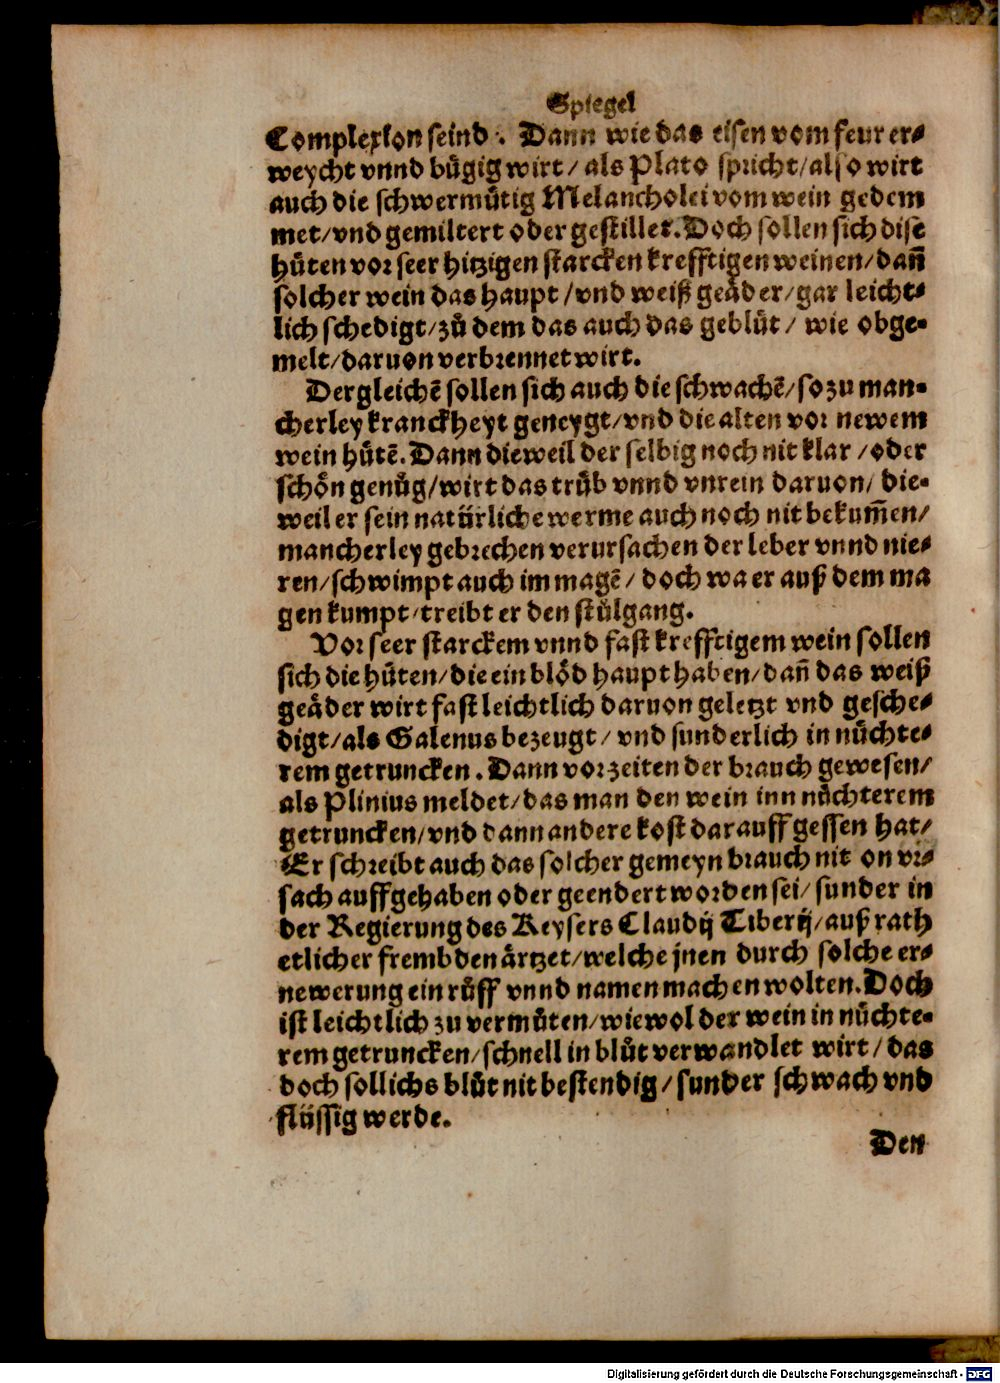 Spiegel
Complexion seind. Dann wie das eisen vom feur er⸗
weycht vnnd bügig wirt/ als Plato spricht/also wirt
auch die schwermütig Melancholei vom wein gedem
met/vnd gemiltert oder gestillet. Doch sollen sich dise
hüten vor seer hitzigen starcken krefftigen weinen/dañ
solcher wein das haupt/vnd weiß geäder/gar leicht⸗
lich schedigt/zů dem das auch das geblüt/ wie obge⸗
melt/daruon verbrennet wirt.
Dergleichē sollen sich auch die schwachē/so zu man⸗
cherley kranckheyt geneygt/vnd die alten vor newem
wein hütē. Dann dieweil der selbig noch nit klar/oder
schön genůg/wirt das trüb vnnd vnrein daruon/ die⸗
weil er sein natürliche werme auch noch nit bekum̃en/
mancherley gebrechen verursachen der leber vnnd nie⸗
ren/schwimpt auch im magē/ doch wa er auß dem ma
gen kumpt/treibt er den stůlgang.
Vor seer starckem vnnd fast krefftigem wein sollen
sich die hüten/die ein blöd haupt haben/dañ das weiß
geäder wirt fast leichtlich daruon geletzt vnd gesche⸗
digt/als Galenus bezeugt/ vnd sunderlich in nüchte⸗
rem getruncken. Dann vorzeiten der brauch gewesen/
als Plinius meldet/das man den wein inn nüchterem
getruncken/vnd dann andere kost darauff gessen hat/
Er schreibt auch das solcher gemeyn brauch nit on vr⸗
sach auffgehaben oder geendert worden sei/ sunder in
der Regierung des Keysers Claudij Tiberij/auß rath
etlicher frembden ärtzet/welche jnen durch solche er⸗
newerung ein růff vnnd namen machen wolten. Doch
ist leichtlich zu vermůten/wiewol der wein in nüchte⸗
rem getruncken/schnell in blůt verwandlet wirt/das
doch sollichs blůt nit bestendig/sunder schwach vnd
flüssig werde.
Den
Digitalisierung gefördert durch die Deutsche Forschungsgemeinschaft - DFG